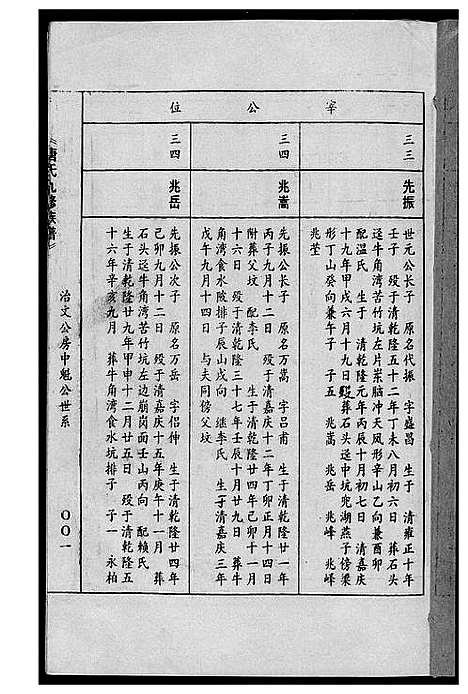 宰公位
三三 先振
世元公长子 原名代振 字盛昌 生于 清雍正十年
壬子 殁于清乾隆五十二年丁未八月初六日 葬石头
迳牛角湾苦竹坑左片岽脑冲天凤形辛山乙向兼酉卯
配温氏 生于 清乾隆元年丙辰十月初七日 清嘉庆
十九年甲戌六月十九日 葬石头迳中坑兜湖燕子傍梁
形丁山癸向兼午子 子五 兆嵩 兆岳 兆峰 兆峰
兆荃
三四 兆嵩
先振公长子 原名万嵩 字吕甫 生于清乾隆廿一年
丙子九月十二日 殁于清嘉庆十二年丁卯正月十四日
附葬父坟 配李氏 生于清乾隆廿四年己卯十一月
十六日 殁于清乾隆三十七年壬辰十月廿九日 葬牛
角湾食水陂排子辰山戌向 继李氏 生于清嘉庆三年
戊午九月十四日 与夫同傍父坟
三四 兆岳
先振公次子 原名万岳 字侣伸 生于清乾隆廿四年
己卯九月十二日 殁于清嘉庆十五年庚午十一月 葬
石头迳牛角湾苦竹坑左边崩岗面壬山丙向 配赖氏
生于清乾隆廿九年甲申十二月廿五日 殁于清乾隆五
十六年辛亥九月 葬牛角湾食水坑排子 子一 永柏
唐氏九修族谱
治文公房中魁公世系
００１